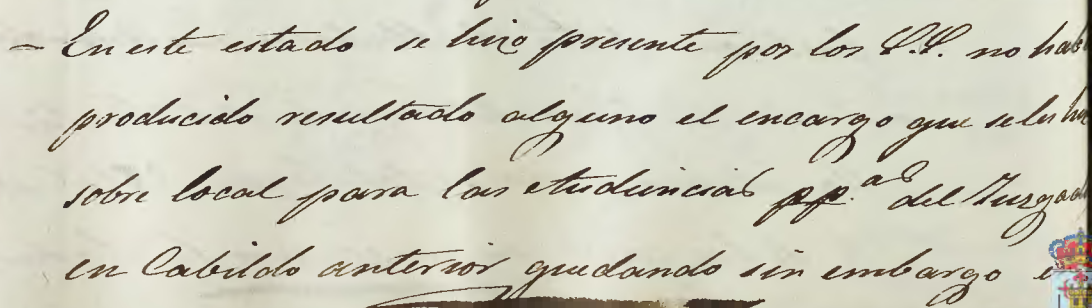 - En este estado se hizo presente por los S.S. no hab
producido resultado alguno el encargo que se les hi
sobre local para las Audiencias pp.as del Juzgad
en Cabildo anterior quedando sin embargo e